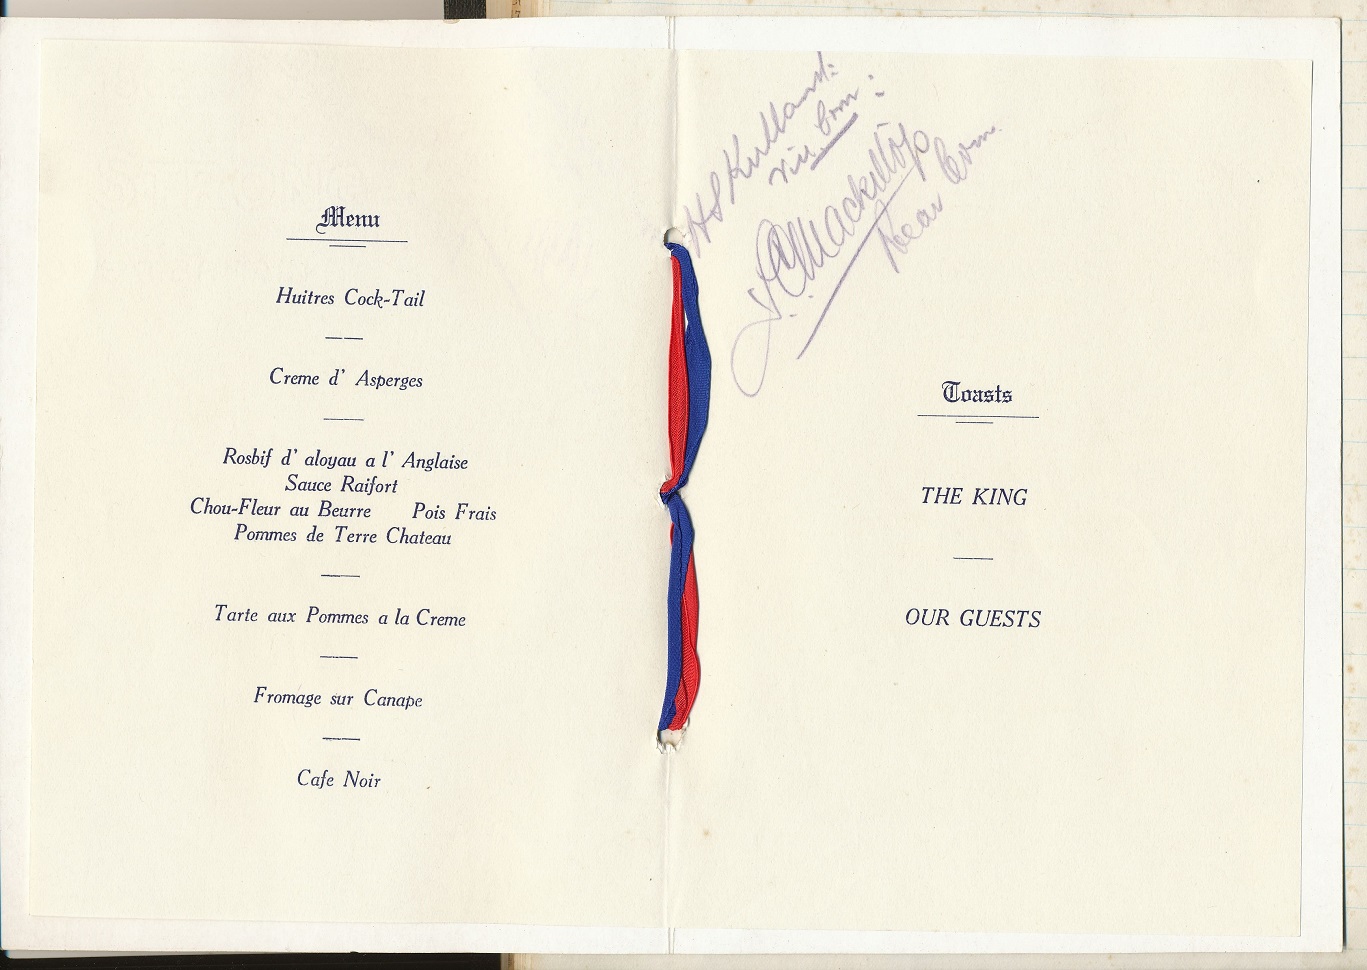 Menu
Huitres Cock-Tail
Creme d' Asperges
Rosbif d' aloyau a l' Anglaise
Sauce Raifort
Chou-Fleur au Beurre Pois Frais
Pommes de Terre Chateau
Tarte aux Pommes a la Creme
Fromage sur Canape
Cafe Noir
Toasts
THE KING
OUR GUESTS